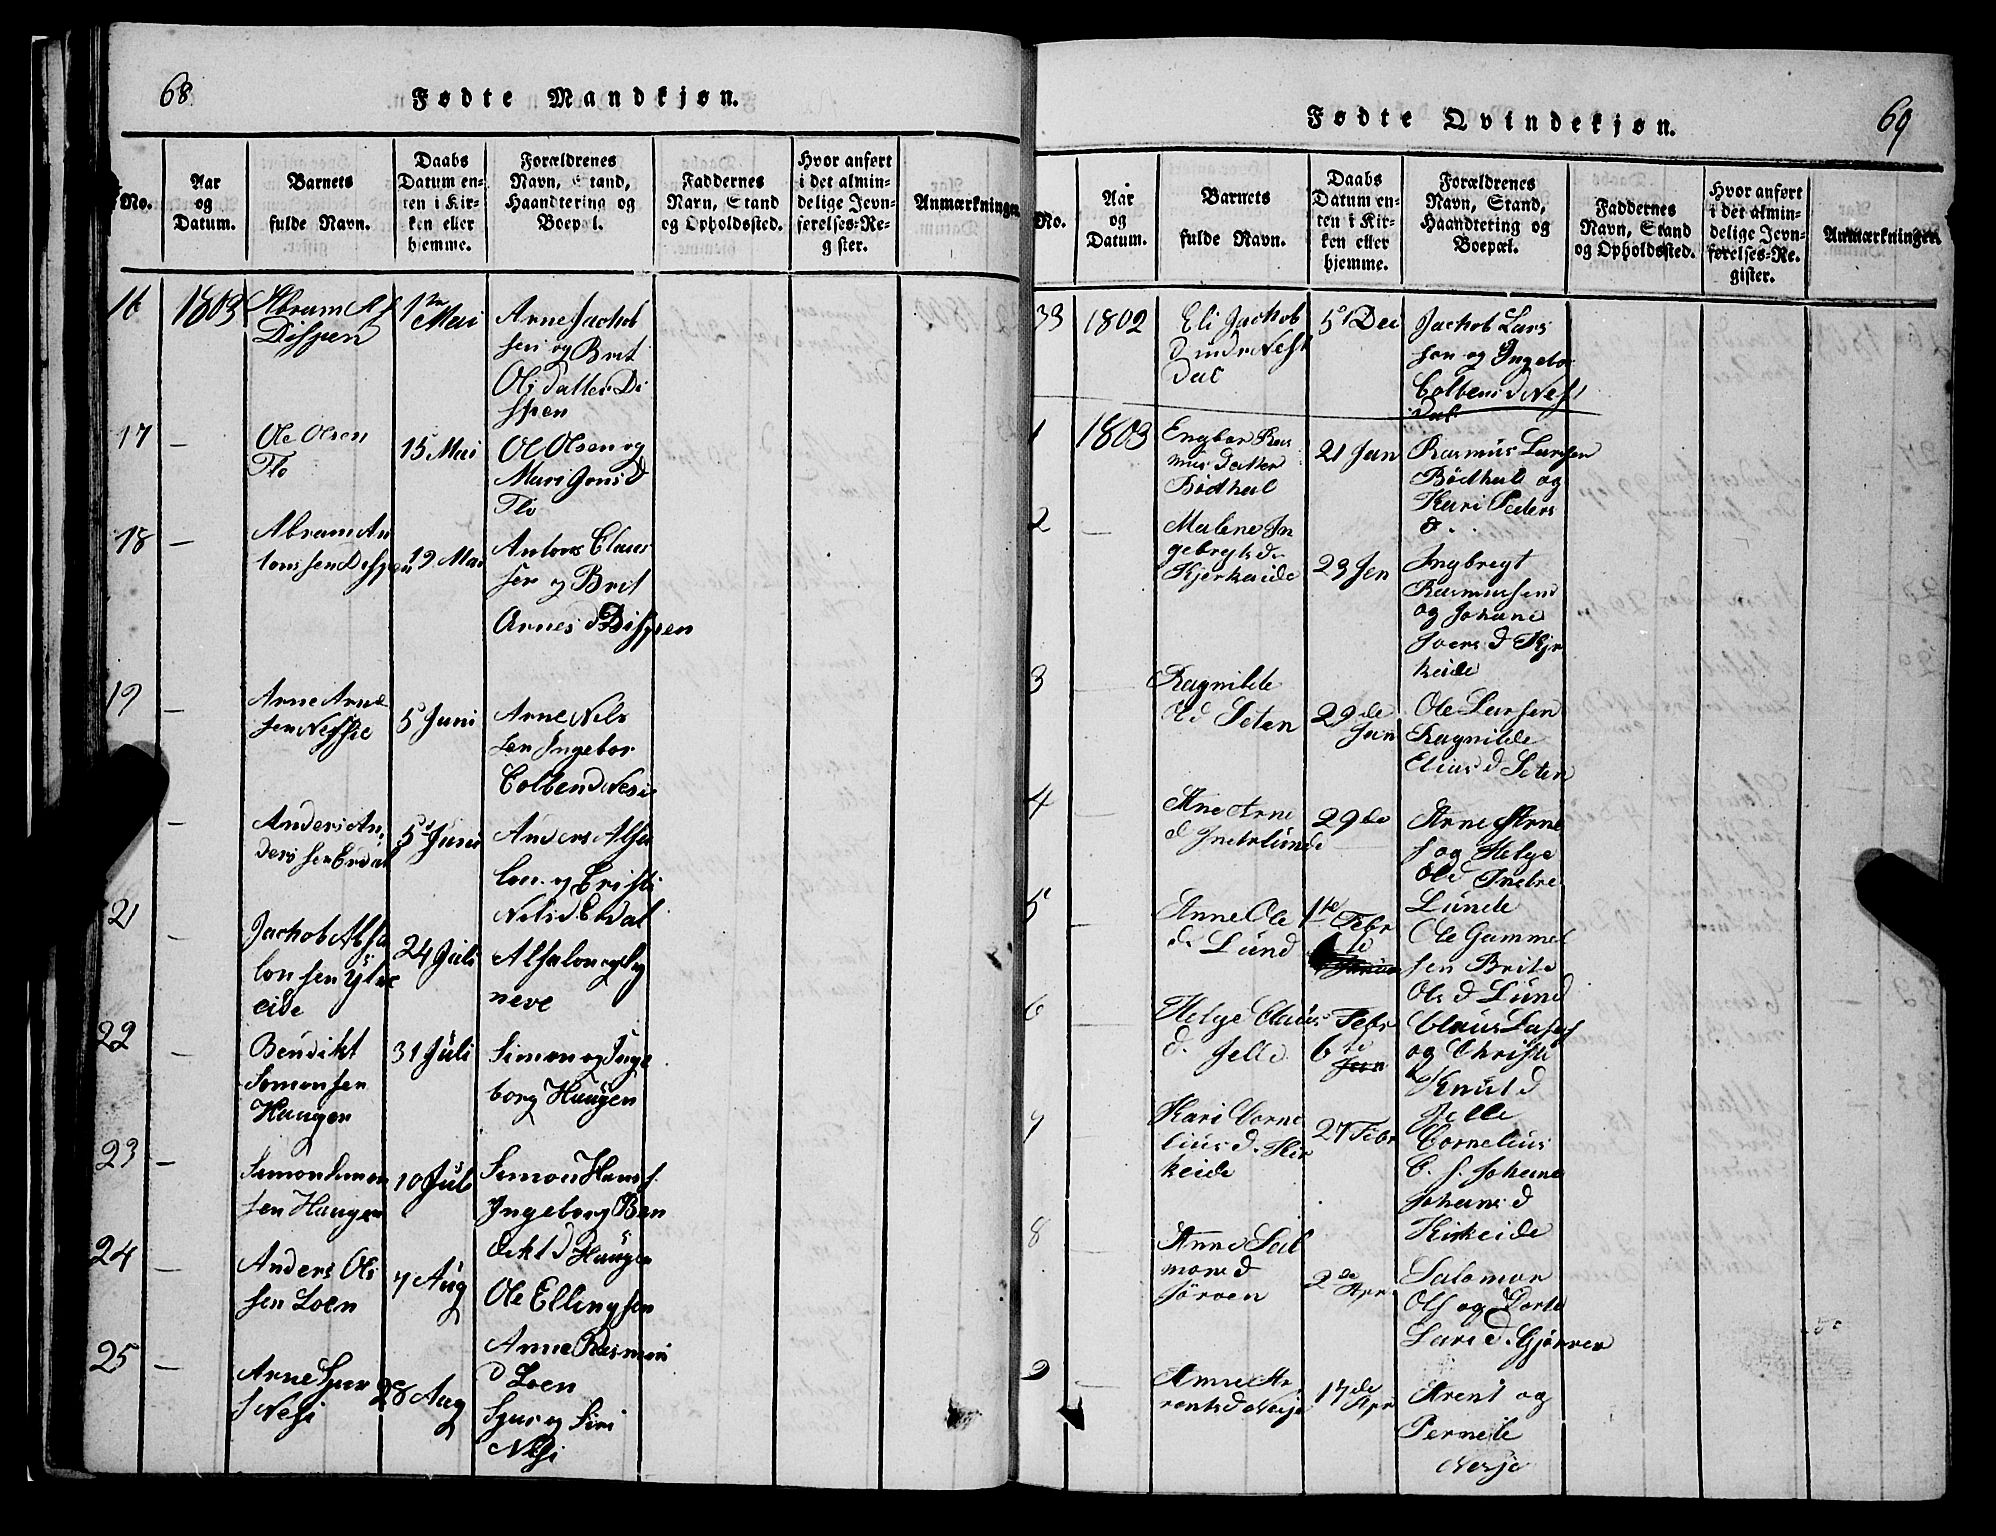 68
Fødte Mandkjøn.
No.
Aar
og
Datum.
Barnets
fulde Navn.
Daabs
Datum en-
ten i Kir-
ken eller
hjemme.
Forældrenes
Navn, Stand,
Haandtering og
Boepæl.
Faddernes
Navn, Stand
og Opholdssted.
Hvor anført
i det almin-
delige Jevn-
førelses-Re-
gister.
Anmærkninger
16
1803
Abram A
Dispen
1 Mai
Arne Jachob
sen og Brit
Ols datter Di
spen
17
—
Ole Olsen
Flo
15 Mai
Ol Olsen og
Mari Jons D
Flo
18
—
Abram An
tons sen Dispen
19 Mai
Antons Claus
sen og Brit
Arnes D Dispen
19
—
Arne Arne
sen Nesse
5 Juni
Arne Nels
sen Ingebor
Colben D Nesie
—
Anders An
ders sen Erdal
5 Juni
Anders Absa
lon og Cristi
Nels d Erdal
21
Jachob Absa
lon sen Ytre
eide
24 Juli
Absalon og Sy
neve
22
—
Bendikt
Somonsen
Haugen
31 Juli
Simon og Inge
borg Haugen
23
—
Simon Simon
sen Haugen
10 Jul
Simon Hans s.
Ingeborg Ben
dekt d Haugen
24
—
Anders Ols
sen Loen
7 Aug
Ole Ellingsen
Anne Rasmus
D Loen
25
—
Arne Sjur
s Nesi
28 Aug
Sjur og Siri
Nesi
69
Fødte Qvindekjøn.
No.
Aar
og
Datum.
Barnets
fulde Navn.
Daabs
Datum en-
ten i Kir-
ken eller
hjemme.
Forældrenes
Navn, Stand,
Haandtering og
Boepæl.
Faddernes
Navn, Stand
og Opholdssted.
Hvor anført
i det almin-
delige Jevn-
førelses-Re-
gister.
Anmærkninger
33
1802
Eli Jachob
dal
5 Dec
Jachob Lars
sen og Ingebor
Colbens d Nest
dal
1
1803
Engbor Ras
mus datter
Bødhal
21 Jan
Rasmus Larsen
Bødhal og
Kari Peders
d.
2
—
Malene In
gebrgts d.
Kjerkeide
23 Jan
Ingbregt
Rasmussen
og Johane
Joers d Kjr
keide
3
—
Ragnilde
d Seten
29 de
Jan
Ole Larsen
Ragnilde
Elias d Seten
4
—
Ane Arne
d Inetrlunde
29 de
Arne Arne
s og Helge
Ole d Inetre
Lunde
5
—
Anne Ole
d. Lund
1te Febr
Ole Gammel
sen Brite
Ols d Lund
6
—
Helge Claus
d. Jelle
Febr
6 te
Jan
Claus Lass
og Christi
Knut d
Jelle
7
—
Kari Corne
lius d. Kir
keide
27 Febr
Cornelius
C. s. Johane
Johans d
Kirkeide
8
—
Anne Sal
mons d
Jørven
2 de
Apr
Salomon
Ols og Dorte
Lars d. Gjørven
9
—
Anne Ar
rents d Nesje
17 de
Apr
Arent og
Pernele
Nesje